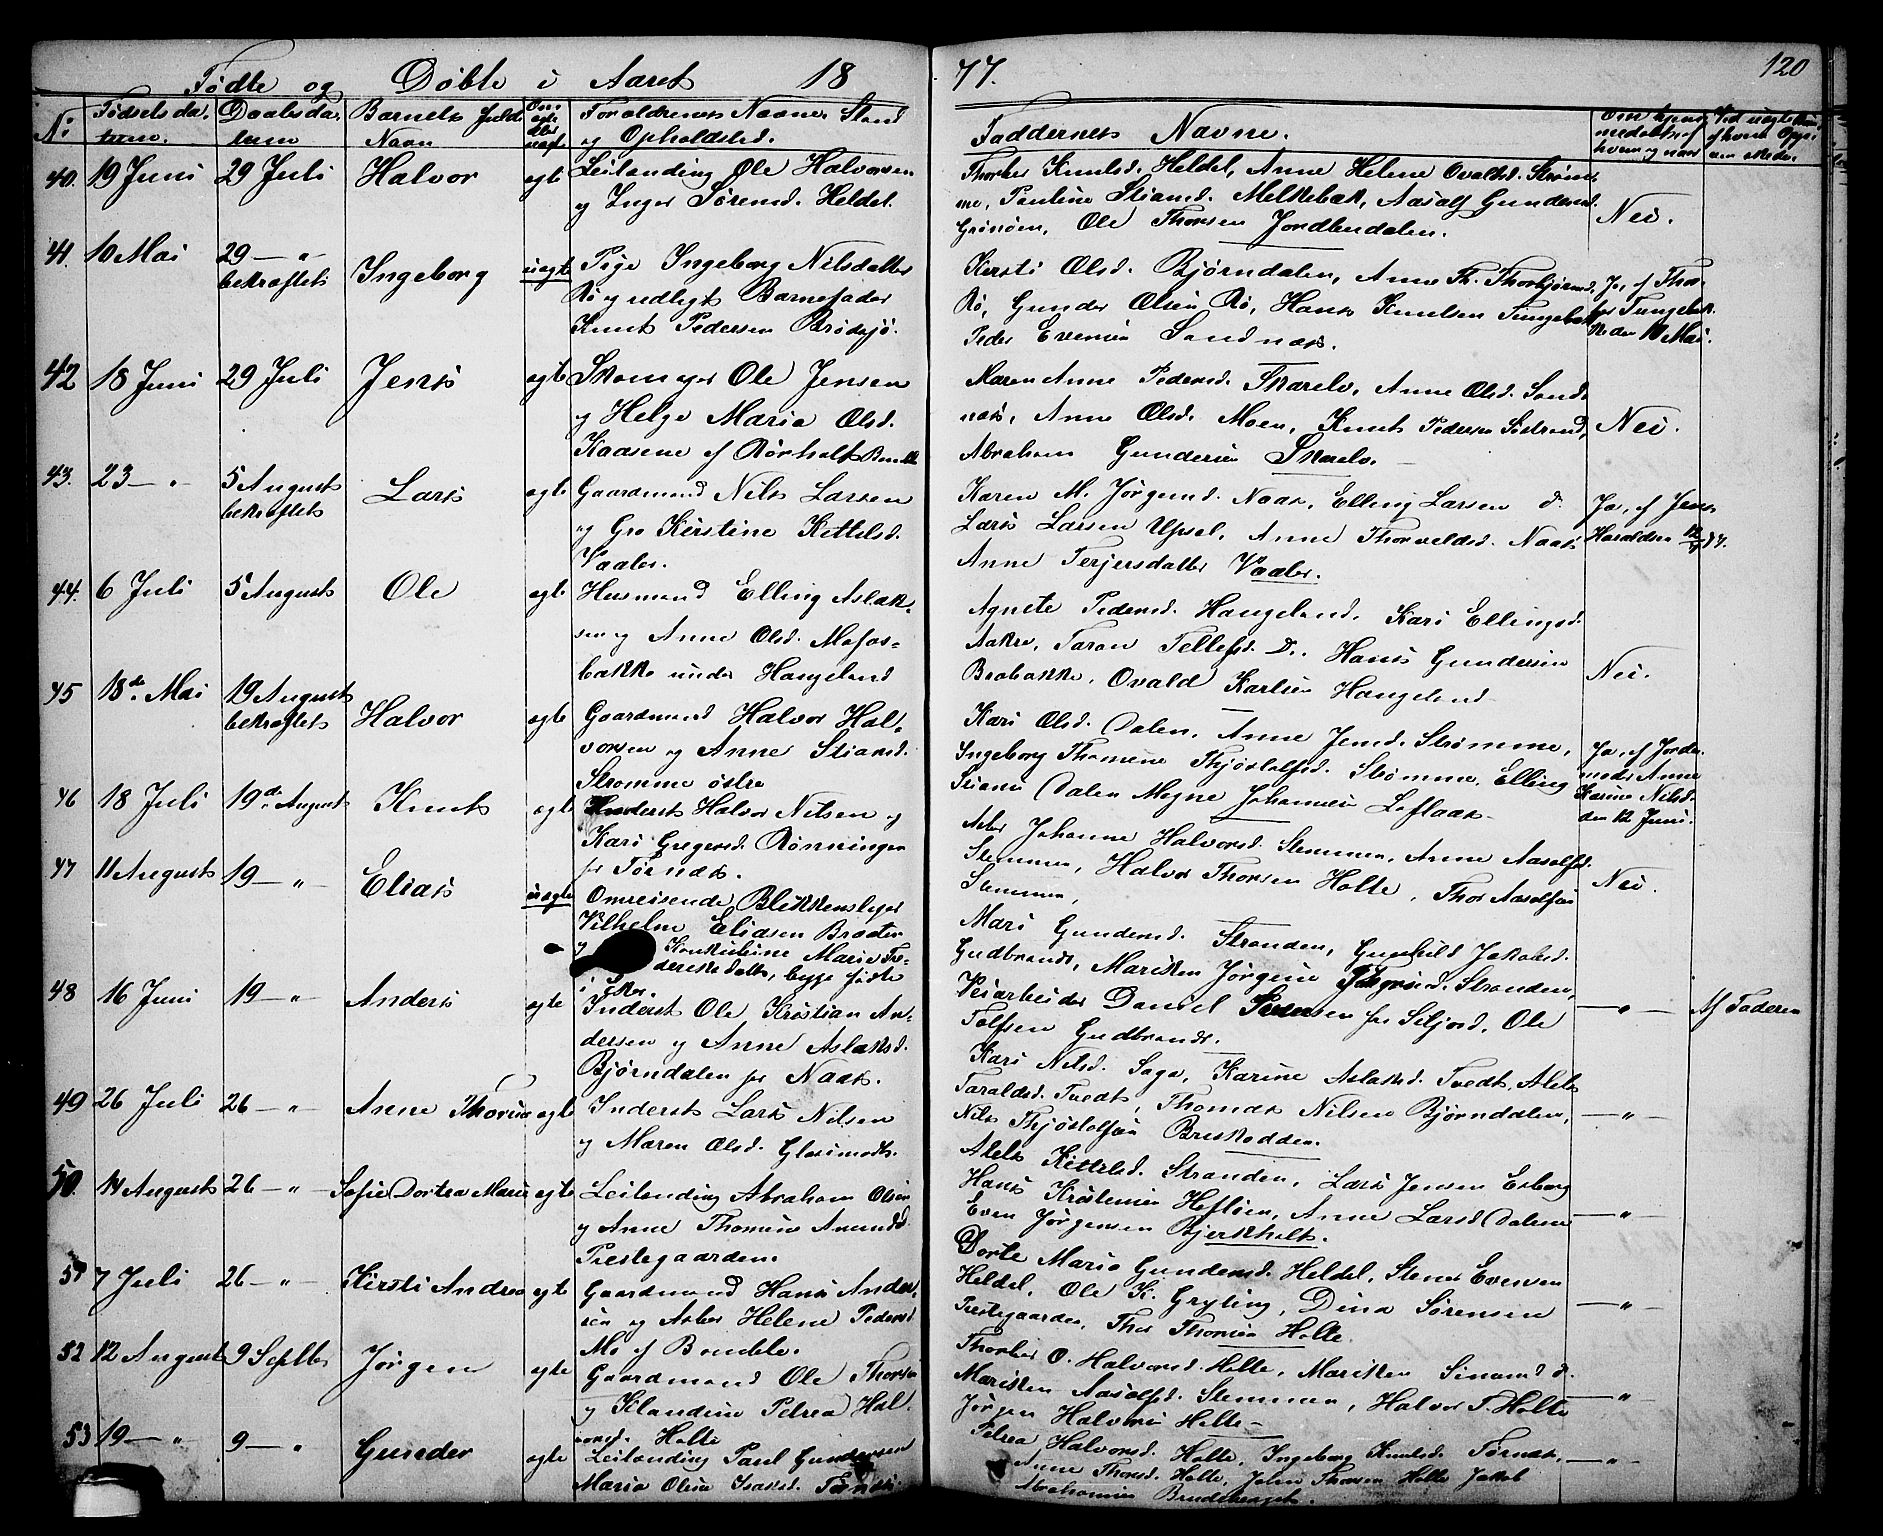 Födte og Döbte i Aaret 18 77. 120
No: Fødselsda- tum. Daabsda- tum Barnets fulde Navn Om ægte eller uægt Forældrenes Navne Stand og Opholdsted. Faddernes Navne. Om hjem- medøbt af hvem og naar
40. 19 Juni 29 Juli Halvor ægte Leilænding Ole Halvorsen
og Inger Sörensd. Heldel.
Thorber Knutsd. Heldel, Anne Helene Ovaldsd. Strøm-
me, Pauline Stiansd. Melkebæk, Aasolf Gundersd.
Grönöen, Ole Thorsen Jordbendalen. Nei.
41. 10 Mai 29 — " — bekræftets Ingeborg uægte Pige Ingeborg Nilsdatter
Rö og udlagt Barnefader
Knut Pedersen Brödsjö.
Kersti Olsd. Bjørndalen, Anne Th. Thorbjørnsd.
Rö, Gunder Olsen Rö, Hans Knutsen Tungebæk
Peder Evensen Sandnæs. Ja, af Thor-
ber Tungebæk
den 10 Mai.
42 18 Juni 29 Juli Jens ægte Skomager Ole Jensen
og Helge Maria Olsd.
Kaasene af Rörholt Bamble
Maren Anne Pedersd. Skarelv, Anne Olsd. Sand-
næs, Anne Olsd. Moen, Knut Pedersen Söstrand,
Abraham Gundersen Skarelv. Nei.
43. 23 — " 5 August bekræftets Lars ægte Gaardmand Nils Larsen
og Gro Kirstine Kittelsd.
Vaaler.
Karen M. Jörgensd. Naas, Elling Larsen d.
Lars Larsen Upsal, Anne Thorvaldsd. Naas
Anne Terjersdatter Vaaler. Ja, af Jens
Haraldsen
44. 6 Juli 5 August Ole ægte Husmand Elling Aslak-
sen og Anne Olsd. Mofos-
bakke under Haugeland
Agnete Pedersd. Haugeland, Kari Ellingsd.
Aakre, Taran Tellefsd. D., Hans Gundersen
Brobakke, Ovald Karlsen Haugeland. Nei.
45 18de Mai 19 August bekræftets Halvor ægte Gaardmand Halvor Hal-
vorsen og Anne Stiansd.
Strømme östre
Kari Olsd. Dalen, Anne Jensd. Strømme,
Ingeborg Thomine Thjöstolfsd. Strømme, Elling
Stians Dalen Mogne Johannesen Loflaas. Ja, af Jorde-
moder Anne
Karine Nilsd.
den 12 Juni.
46 18 Juli 19de August Knut ægte Inderst Halvor Nilsen og
Kari Gregersd. Rönningen
fr Törnæs.
Asber Johanne Halvorsd. Stemmen, Anne Aasolfsd.
Stemmen, Halvor Thorsen Holte, Thor Aasolfsen
Stemmen, Nei.
47 11 August 19 — " — Elias uægte Omreisende Blikkenslager
Vilhelm Eliasen Braaten
og Konkubine Marie Fre-
deriksdatt, begge födte
i Eker
Mari Gundersd. Stranden, Gunhild Jakobsd.
Gudbrands, Marthen Jörgine Jörgensd. Stranden,
Veiarbeider Daniel Pedersen fra Siljord, Ole
Tolfsen Gudbrands. — " — Af Faderen
48 16 Juni 19 — " — Anders ægte Inderst Ole Kristian An-
dersen og Anne Aslaksd.
Bjørndalen fr Naas.
Kari Nilsd. Saga, Karine Aslaksd. Tvedt, Alet
Taraldsd. Tvedt, Thomas Nilsen Bjørndalen,
Nils Thjöstolfsen Breskedden. — " —
49 26 Juli 26 — " — Anne Thorine ægte Inderst Lars Nilsen
og Maren Olsd. Glasimodt.
Alet Kittelsd. Stranden, Lars Jensen Esborg
Hans Kristensen Heflöen, Anne Larsd Dalene
Even Jörgensen Bjerkholt. — " —
50. 14 August 26 — " — Sofie Dortea Marie ægte Leilænding Abraham Olsen
og Anne Thomine Amundsd.
Prestegaarden.
Dorte Maria Gundersd. Heldel, Stener Evensen
Heldel, Ole K. Gryting, Dina Sørensen
Prestegaarden, Thor Thomsen Holte. — " —
51 7 Juli 26 — " — Kirsti Andrea ægte Gaardmand Hans Ander-
sen og Asber Helene Pedersd
Mo af Bamble.
Thorber O. Halvorsd. Holte, Marthen Simonsd d.
Marthen Aasolfsd. Stemmen, Halvor T. Holte
Jörgen Halvorsen Holte. — " —
52 12 August 9 Septbr Jörgen ægte Gaardmand Ole Thorsen
og Klandine Petrea Hal-
vorsd. Holte
Petrea Halvorsd. Holte, Ingeborg Knutsd. Törnæs,
Anne Thorsd. Holte, John Thorsen Holte Jakob
Abrahamsen — " —
53 19 — " — 9 — " Gunder ægte Leilænding Paul Gundersen
Maria Olsen Isaksd. Törnæs.